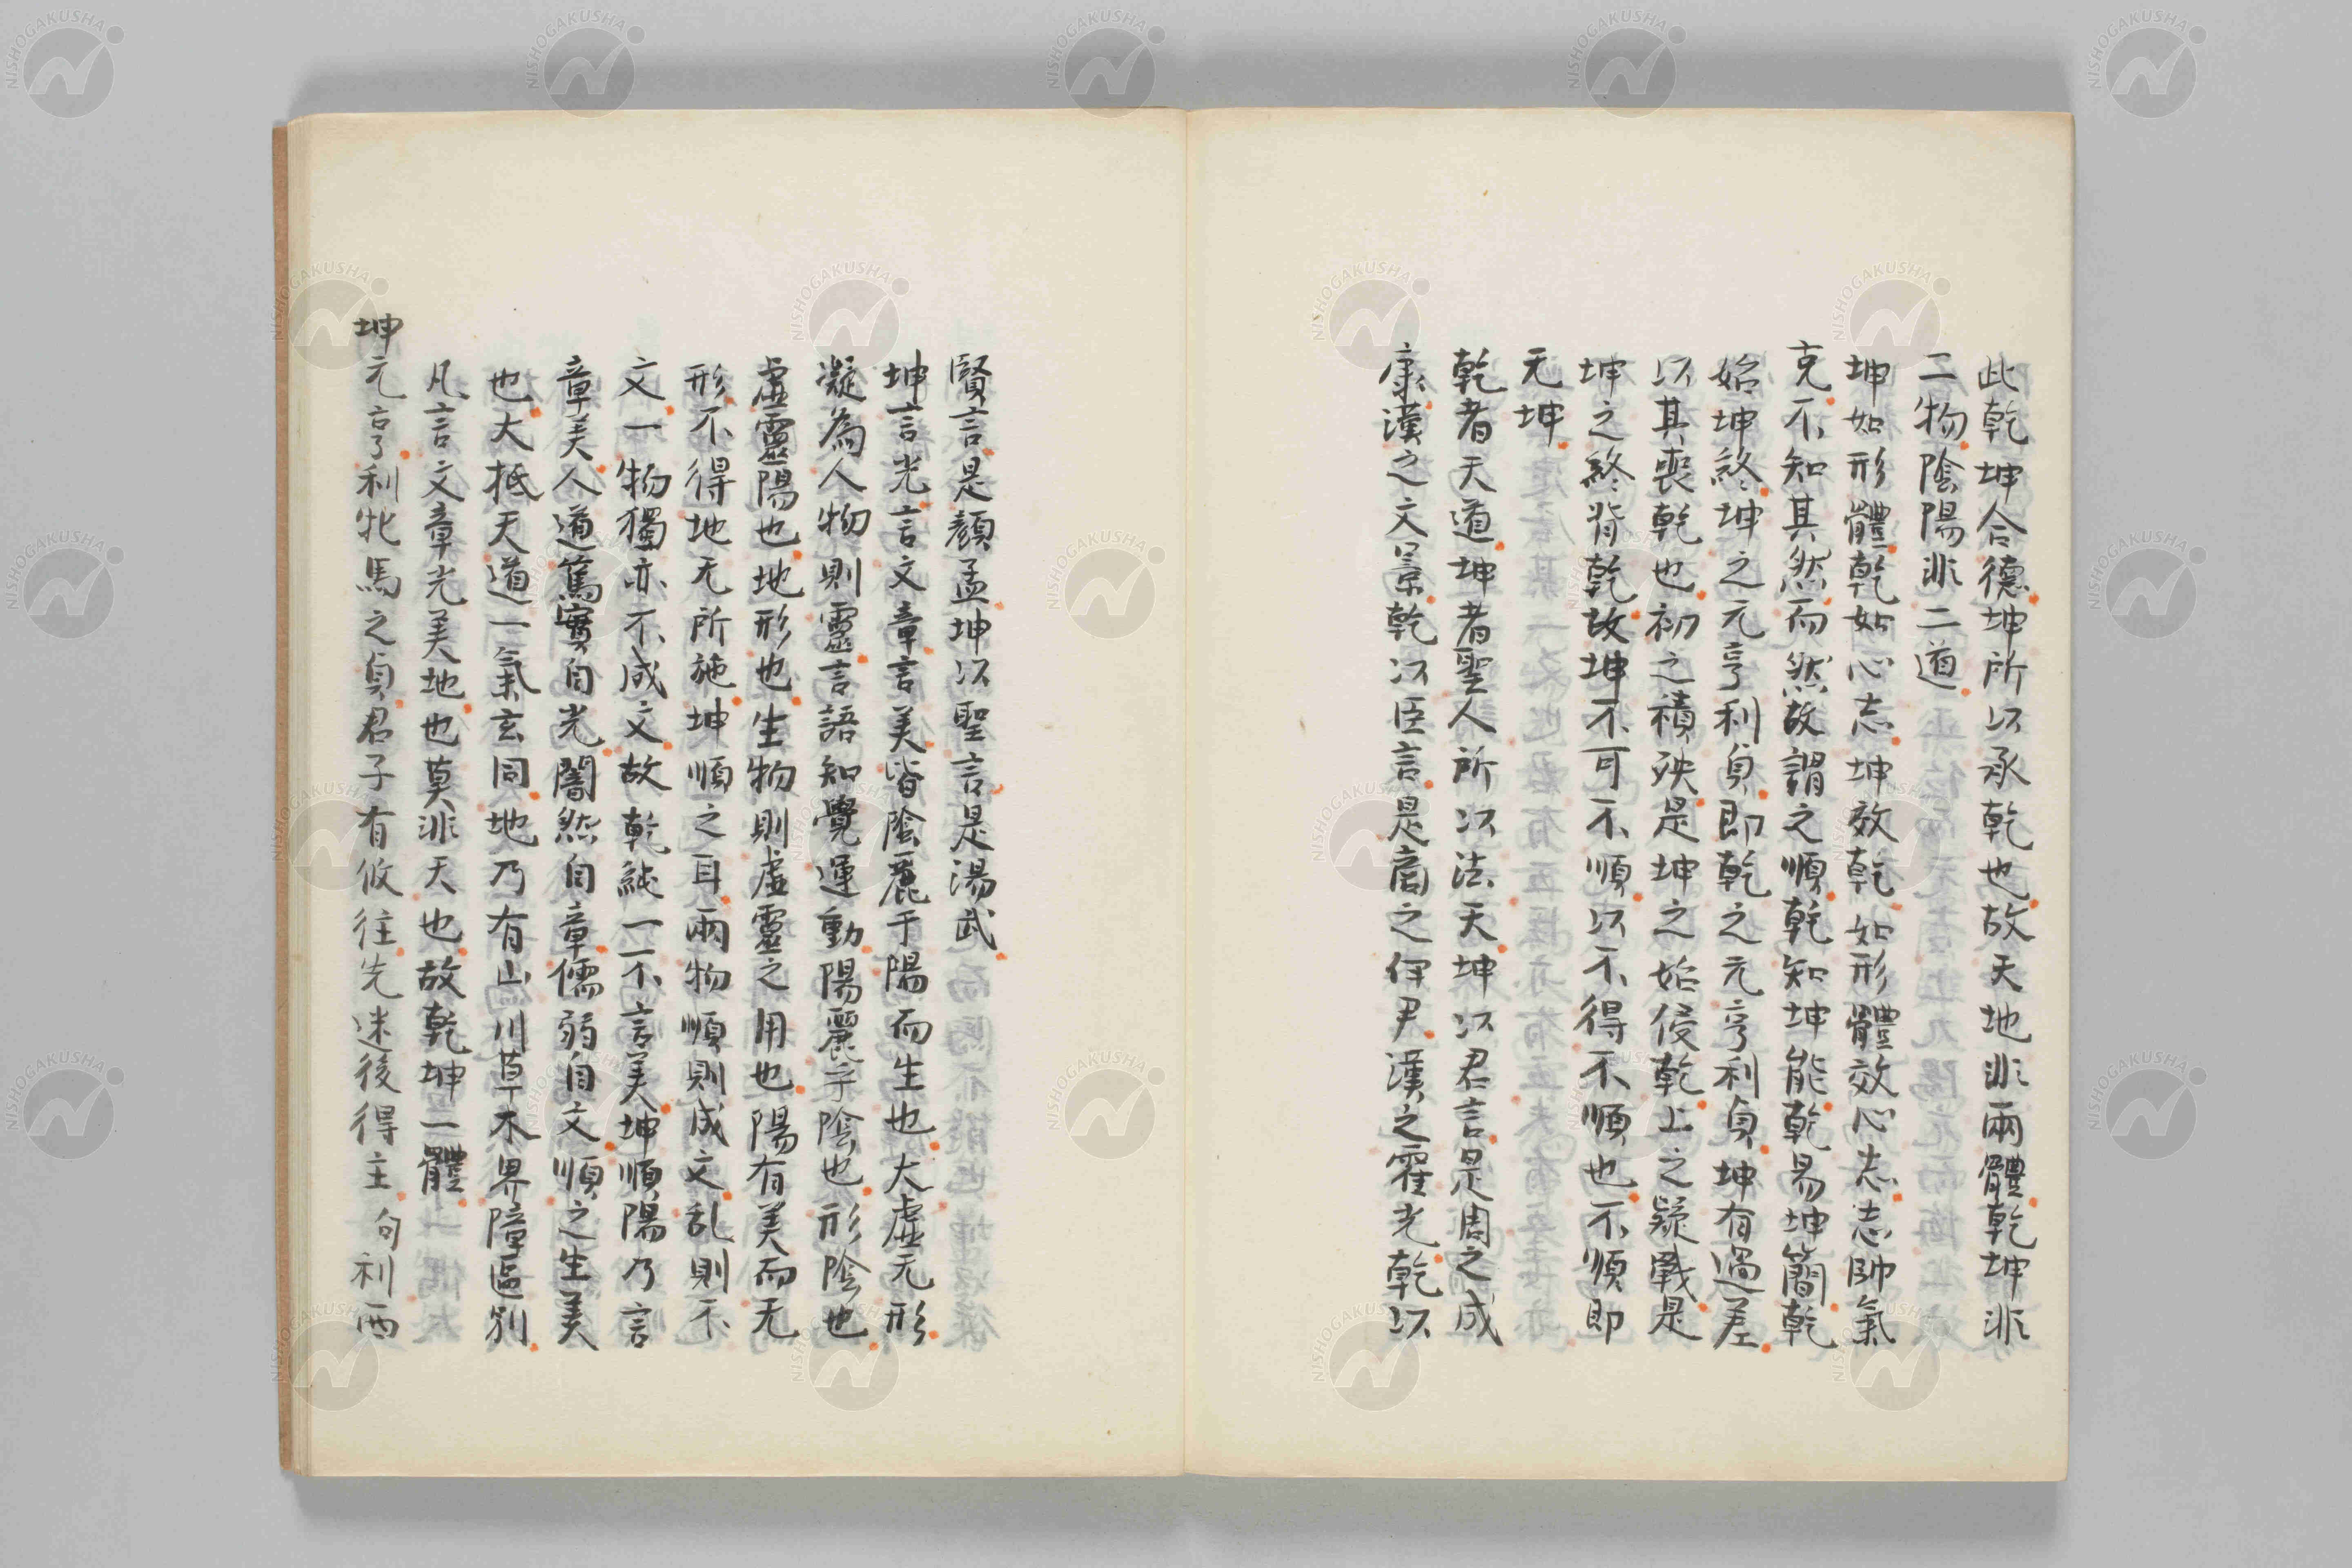 此乾坤合德坤所以承乾也故天地非兩體乾坤非
二物陰陽非二道
坤如形體乾如心志坤效乾如形體效心志志帥氣
克不知其然而然故謂之順乾知坤能乾易坤簡乾
始坤終坤之元亨利貞即乾之元亨利貞坤有過差
以其喪乾也初之積殃是坤之始侵乾上之疑戰是
坤之終背乾故坤不可不順以不得不順也不順即
无坤
乾者天道坤者聖人所以法天坤以君言是周之成
康漢之文景乾以臣言是商之伊尹漢之霍光乾以
賢言是顏孟坤以聖言是湯武
坤言光言文章言美皆陰麗于陽而生也大虛无形
凝為人物則靈言語知覺運動陽麗乎陰也形陰也
虛靈陽也地形也生物則虛靈之用也陽有美而无
形不得地无所施坤順之耳兩物順則成文乱則不
文一物獨亦不成文故乾純一不言美坤順陽乃言
章美人道篤實自光闇然自章儒弱自文順之生美
也大抵天道一氣玄同地乃有山川草木界障區别
凡言文章光美地也莫非天也故乾坤一體
坤元亨利牝馬之貞君子有攸往先迷後得主句利西
NISHOGAKUSHA